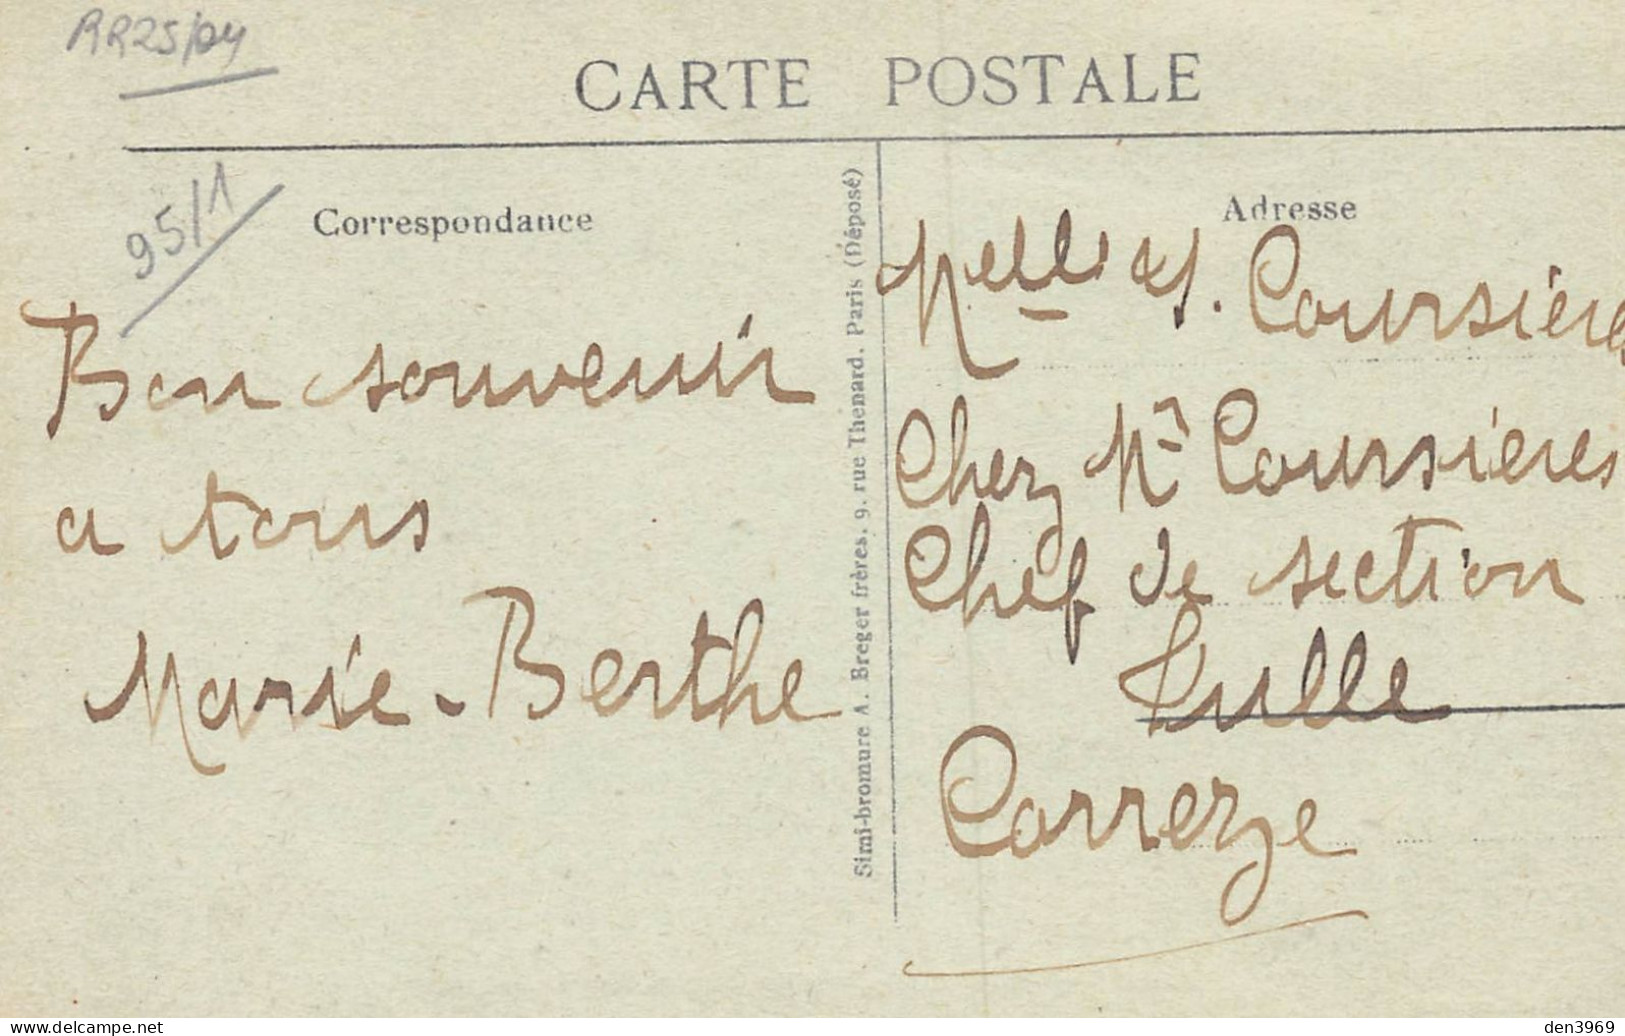 RR25/04
CARTE POSTALE
95/1
Correspondance
Bon souvenir
a tous
Marie-Berthe
Simi-bromure A. Breger frères, 9, rue Thenard, Paris (Déposé)
Adresse
Melle Coursières
Chez Mr Coursieres
Chef de section
Tulle
Correze
den3969